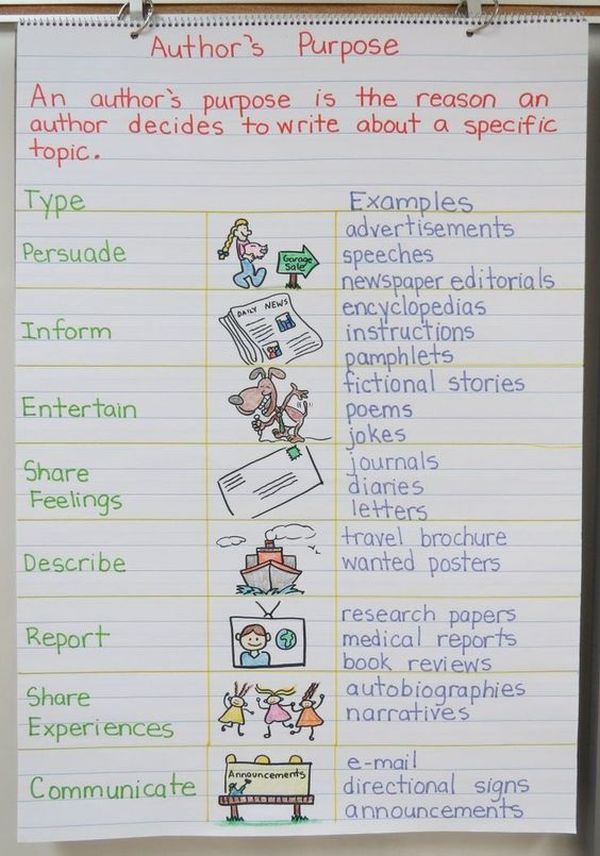 Author's Purpose
An author's purpose is the reason an
author decides to write about a specific
topic.
Type Examples
Persuade
Garage
Sale
advertisements
speeches
newspaper editorials
Inform
DAILY NEWS
encyclopedias
instructions
pamphlets
Entertain
fictional stories
poems
jokes
Share
Feelings
journals
diaries
letters
Describe
travel brochure
wanted posters
Report
research papers
medical reports
book reviews
Share
Experiences
autobiographies
narratives
Communicate
Announcements
e-mail
directional signs
announcements